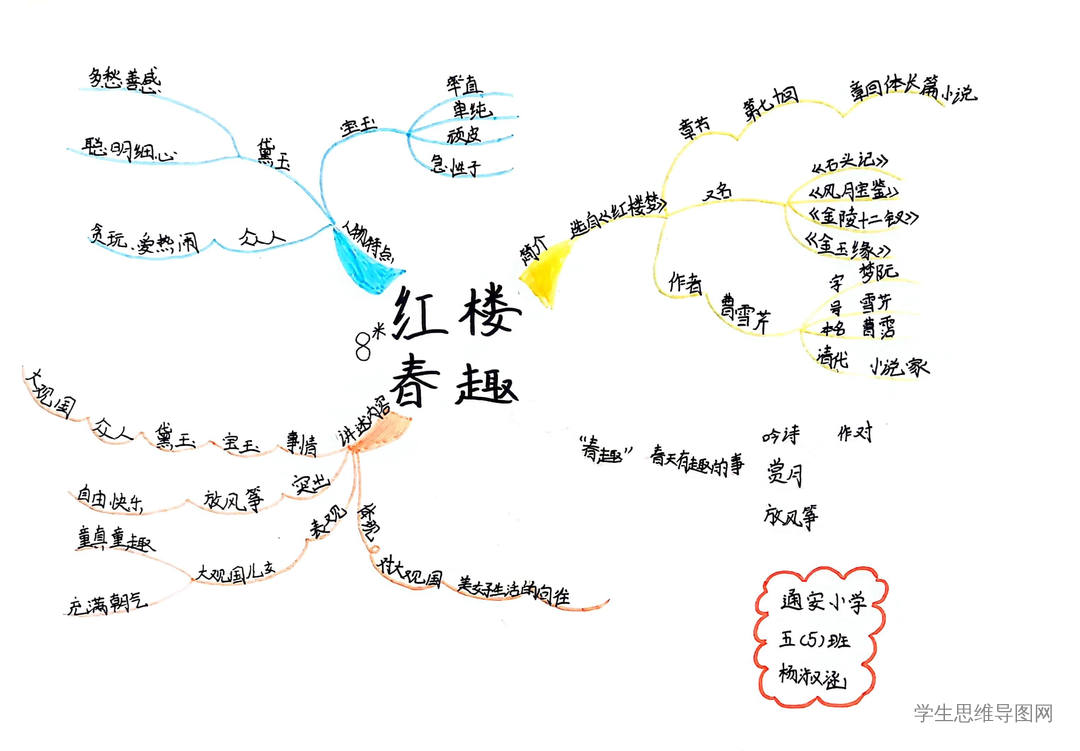 红楼
春趣
8*
人物特点
黛玉
多愁善感
聪明细心
宝玉
率直
单纯
顽皮
急性子
众人
贪玩、爱热闹
简介
选自《红楼梦》
章节
第七十回
章回体长篇小说
又名
《石头记》
《风月宝鉴》
《金陵十二钗》
《金玉缘》
作者
曹雪芹
字 梦阮
号 雪芹
本名 曹霑
清代 小说家
讲述内容
事情
宝玉
黛玉
众人
大观国
突出
放风筝
自由快乐
表观
大观国儿女
童真童趣
充满朝气
对大观国 美好生活的向往
“春趣” 春天有趣的事
吟诗 作对
赏月
放风筝
通安小学
五（5）班
杨淑涵
学生思维导图网